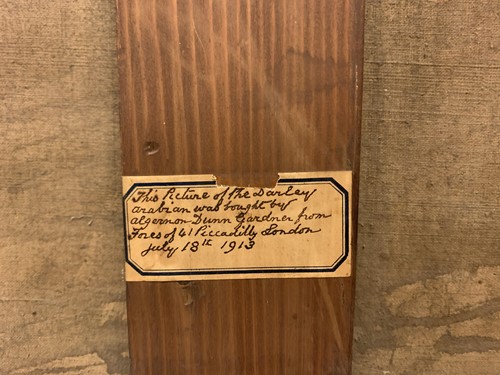 This Picture of the Darley
arabian was bought by
algernon Dunn Gardner from
Fores of 41 Piccadilly London
July 18th 1913